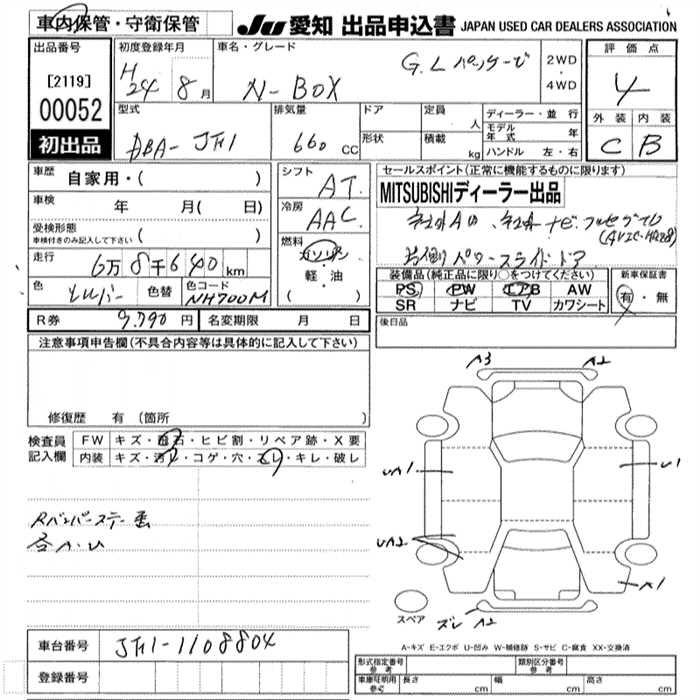 車内保管・守衛保管
JU 愛知 出品申込書 JAPAN USED CAR DEALERS ASSOCIATION
出品番号
[2119]
00052
初出品
初度登録年月
H24 8月
車名・グレード
N-BOX G.Lパッケージ
2WD・4WD
評価点
4
外装 内装
C B
型式
DBA-JF1
排気量
660 cc
ドア
形状
定員 人
積載 kg
ディーラー・並行
モデル年式 年
ハンドル 左・右
車歴
自家用・( )
車検
年 月( 日)
受検形態
車検付きのみ記入して下さい ( )
走行
6万8千640km
色 シルバー 色替 色コード NH700M
シフト
AT
冷房
AAC
燃料
ガソリン
軽・油
( )
セールスポイント(正常に機能するものに限ります)
MITSUBISHIディーラー出品
社外AW、社外ナビ フルセグTV
片側パワースライドドア
装備品(純正品に限り○をつけてください)
PS PW エアB AW
SR ナビ TV カワシート
新車保証書
有・無
R券 9.790円 名変期限 月 日
後日品
注意事項申告欄(不具合内容等は具体的に記入して下さい)
修復歴 有(箇所 )
検査員記入欄
FW キズ・飛石・ヒビ割・リペア跡・X要
内装 キズ・汚れ・コゲ・穴・スレ・キレ・破レ
A3 A2
UA1 U1
UA2 A1
スペア
ズレ A2
A-キズ E-エクボ U-凹み W-補修跡 S-サビ C-腐食 XX-交換済
車台番号 JF1-1108804
登録番号
形式指定番号 参考
類別区分番号 参考
車庫証明用 参考 長さ cm 幅 cm 高さ cm